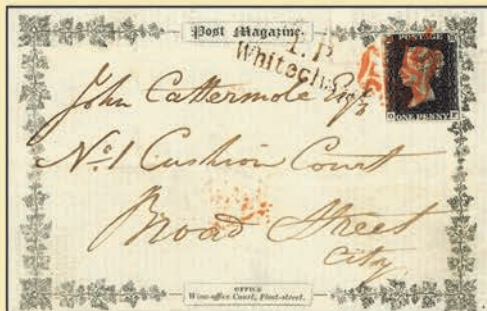 Post Magazine.
T.P
Whitechapel
POSTAGE
John Cattermole Esqr
No. 1 Cushion Court
Broad Street
City
ONE PENNY
OFFICE
Wine-office Court, Fleet-street.